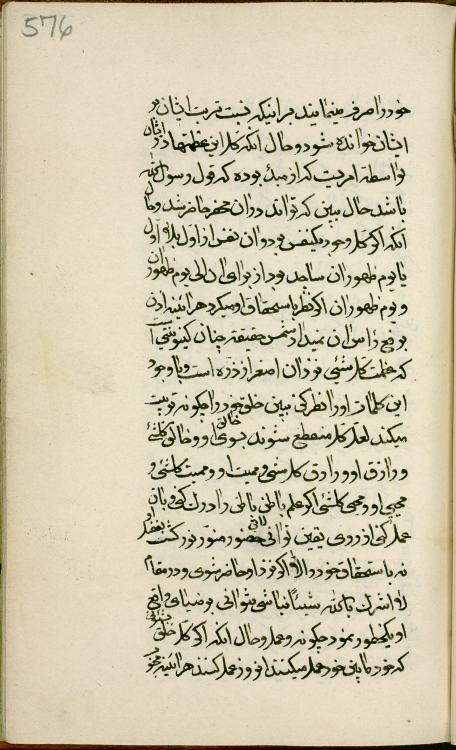 576
خود را صرف مینمایند در اینکه نسبت تربت ایشان بر
ایشان خوانده شود و حال آنکه کل این عظمتها در ایشان
بواسطه امریست که از مبدء بوده که قول رسول الله
باشد حال ببین که تواند در آن محضر حاضر شد و حال
آنکه اگر کل وجود یکنفس بود و آن نفس از اول لا اول
تا یوم ظهور آن ساجد بود از برای آن الی یوم ظهور آن
و یوم ظهور آن اگر نظر باستحقاق او میکرد هر آینه اذن
بوقوع رأس آن نمیداد شمس حقیقت چنان کینونیتی است
که عظمت کل شیئ نزد آن اصغر از ذره است و با وجود
این کلمات او را نظر کن ببین خلق خود را چگونه تربیت
میکند لعل کل منقطع شوند بسوی او و خالق کلشئ
و رازق او و رازق کل شئ و ممیت او و ممیت کلشئ و
محیی او و محیی کلشئ اگر علم باطن باطن را درک کنی و بآن
عمل کنی از روی یقین توانی لایق حضور منور نور گشت بفضل او
نه باستحقاق خود و الا اگر نزد او حاضر شوی و در مقام
لا اشرک بالله شیئا نباشی نتوانی بر ضیای واقع
او یکطور نمود چگونه و عمل و حال آنکه اگر کل خلق
که خود را باین خود عمل میکنند از روز عمل کنند هر آینه